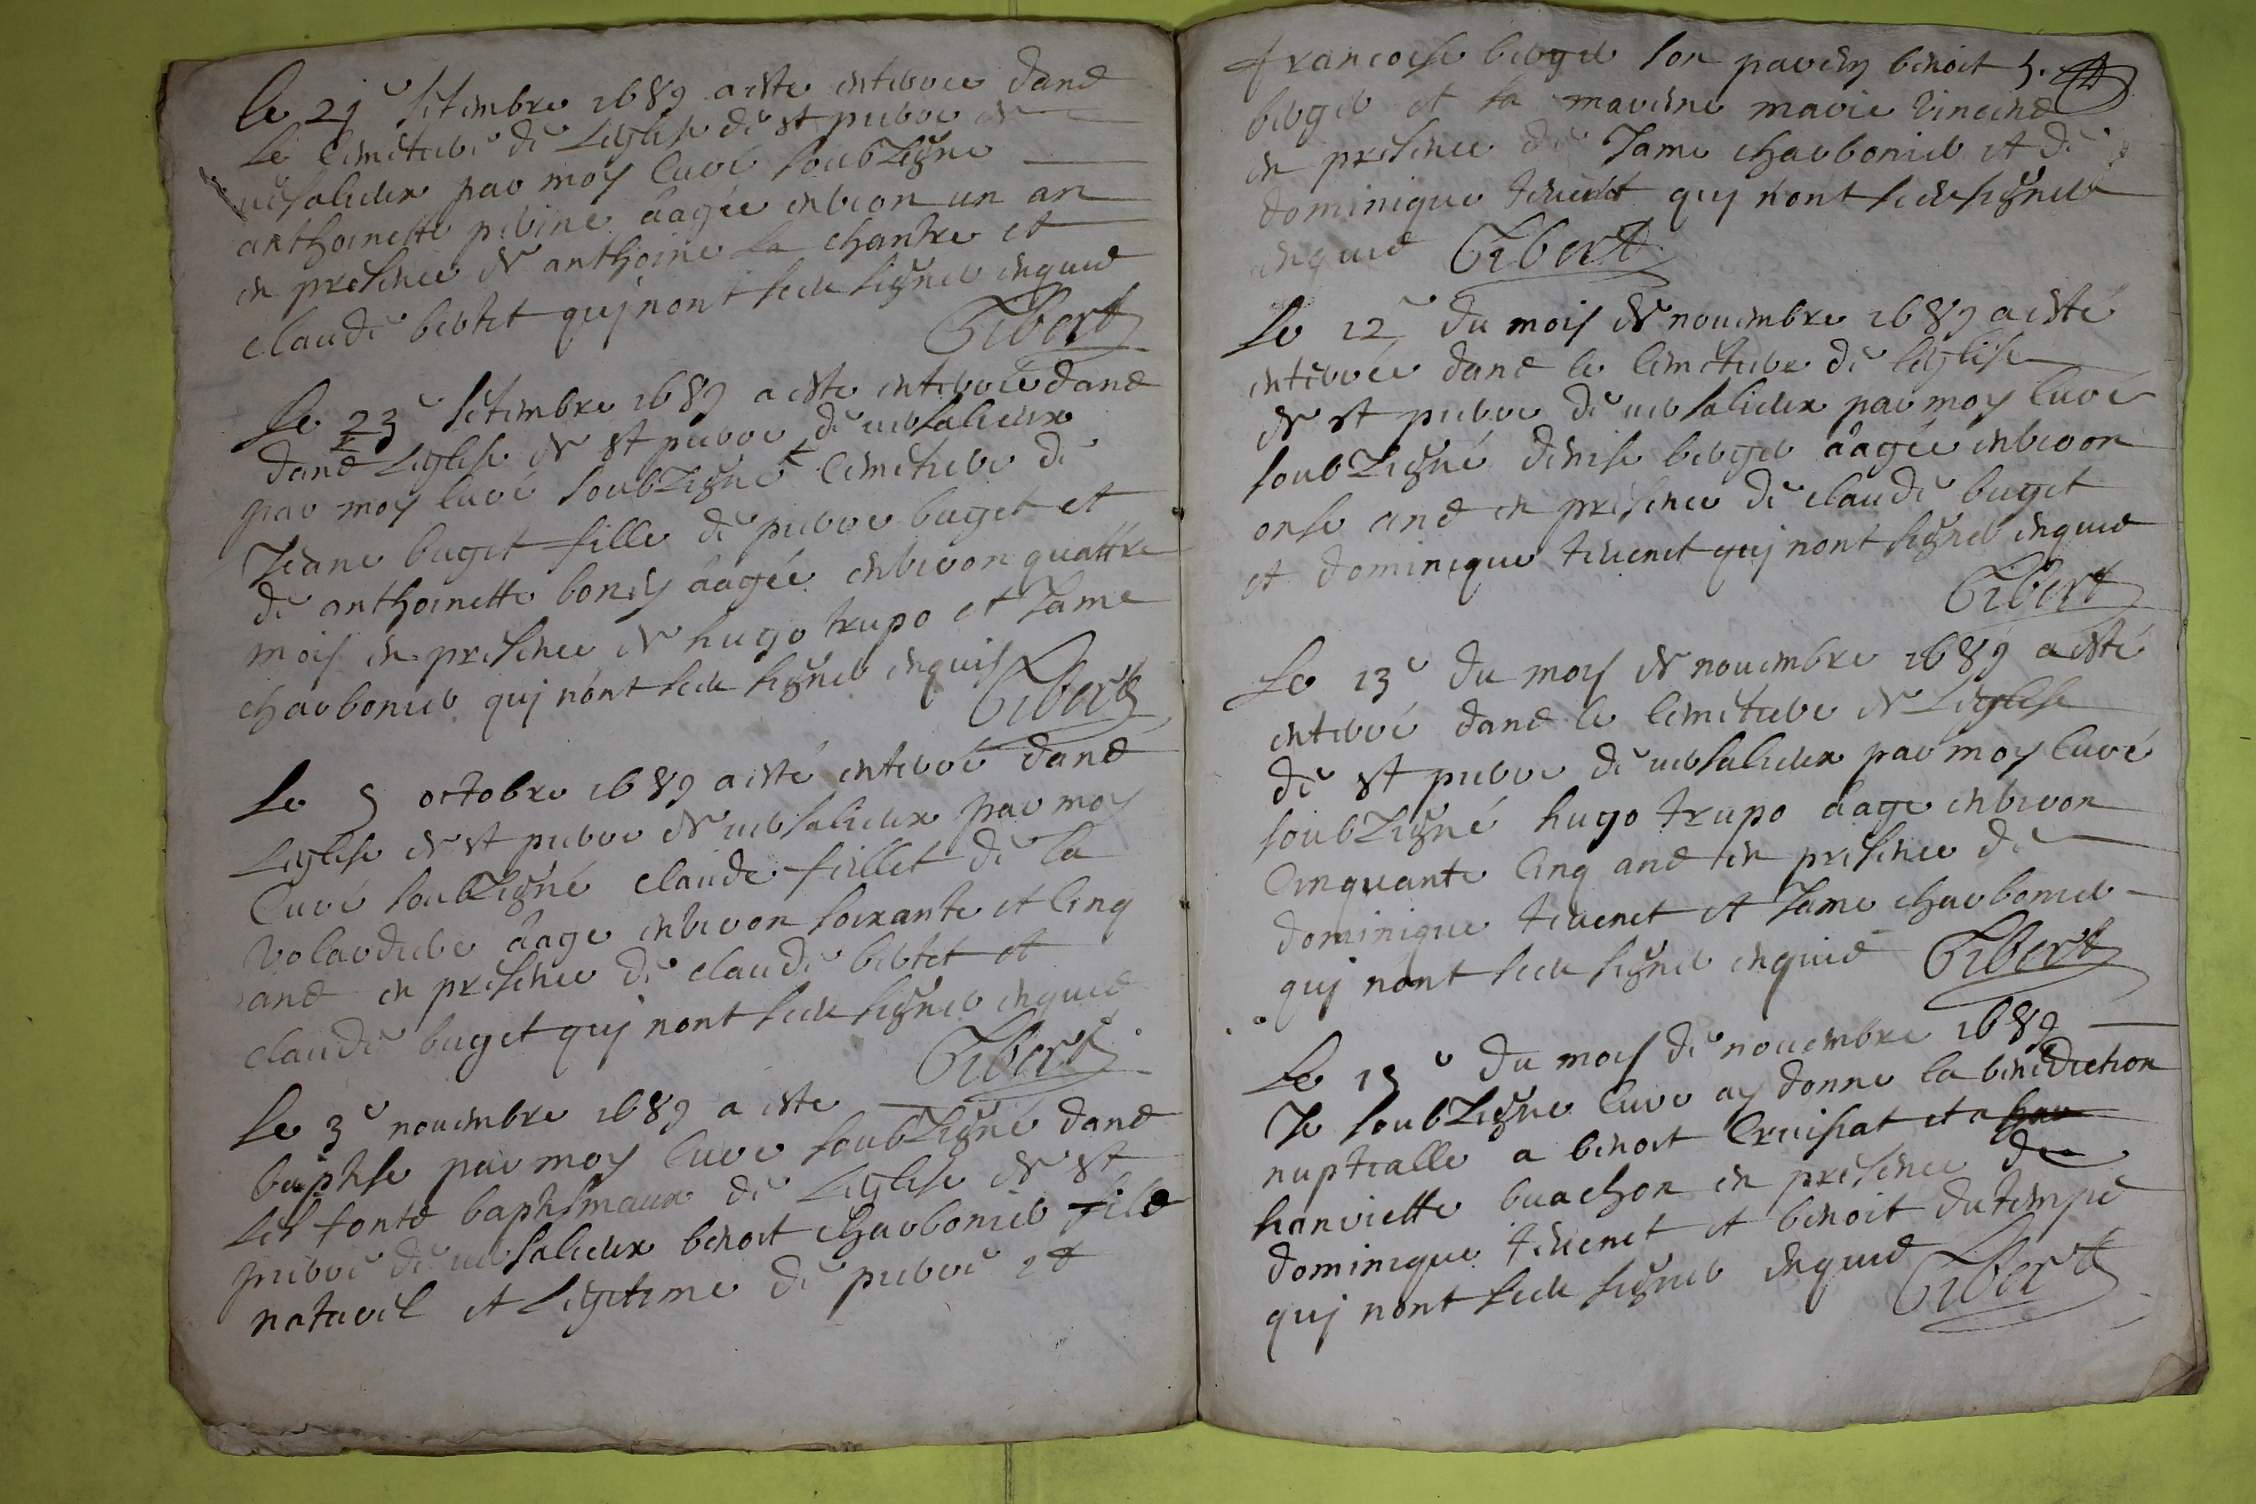 le 21e setembre 1689 a esté enterree dans
le cimetiere de leglise de st pierre de
versalieux par moy curé soubsigné
anthoinette perine âagée environ un an
en presence de anthoine la chantre et
claude bertet quj nont sceu signer enquis
Gibert
le 23e setembre 1689 a esté enterree dans
dans leglise de st pierre de versalieux
par moy curé soubsigné cimetiere de
Jeane buget fille de pierre buget et
de anthoinette bonin âagée environ quattre
mois en presence de hugo trupo et Jame
charbonier quj nont sceu signer enquis
Gibert
le 5 octobre 1689 a esté enterré dans
leglise de st pierre de versalieux par moy
curé soubsigné claude fillet de la
volardiere âage environ soixante et cinq
ans en presence de claude bertet et
claude buget quj nont sceu signer enquis
Gibert
le 3e novembre 1689 a este
baptise par moy curé soubsigné dans
les fonts baptismaux de leglise de st
pierre de versalieux benoit charbonier fils
naturel et legitime de pierre et
francoise berger son parein benoit 5.
berger et sa mareine marie vincens
en presence de Jame charbonier et de
dominique tevenet quj nont sceu signer
enquis Gibert
le 12e du mois de novembre 1689 a esté
enterrée dans le cimetiere de leglise
de st pierre de versalieux par moy curé
soubsigné denise berger âagée environ
onse ans en presence de claude buget
et dominique tevenet quj nont signer enquis
Gibert
le 13e du moys de novembre 1689 a esté
enterré dans le cimetiere de leglise
de st pierre de versalieux par moy curé
soubsigné hugo trupo âage environ
cinquante cinq ans en presence de
dominique tevenet et Jame charbonier
quj nont sceu signer enquis Gibert
le 15e du moys de novembre 1689
Je soubsigne curé ay donne la benediction
nuptialle a benoit Cruisiat et a
hanriette buachon en presence de
dominique tevenet et benoit dutemps
quj nont sceu signer enquis Gibert